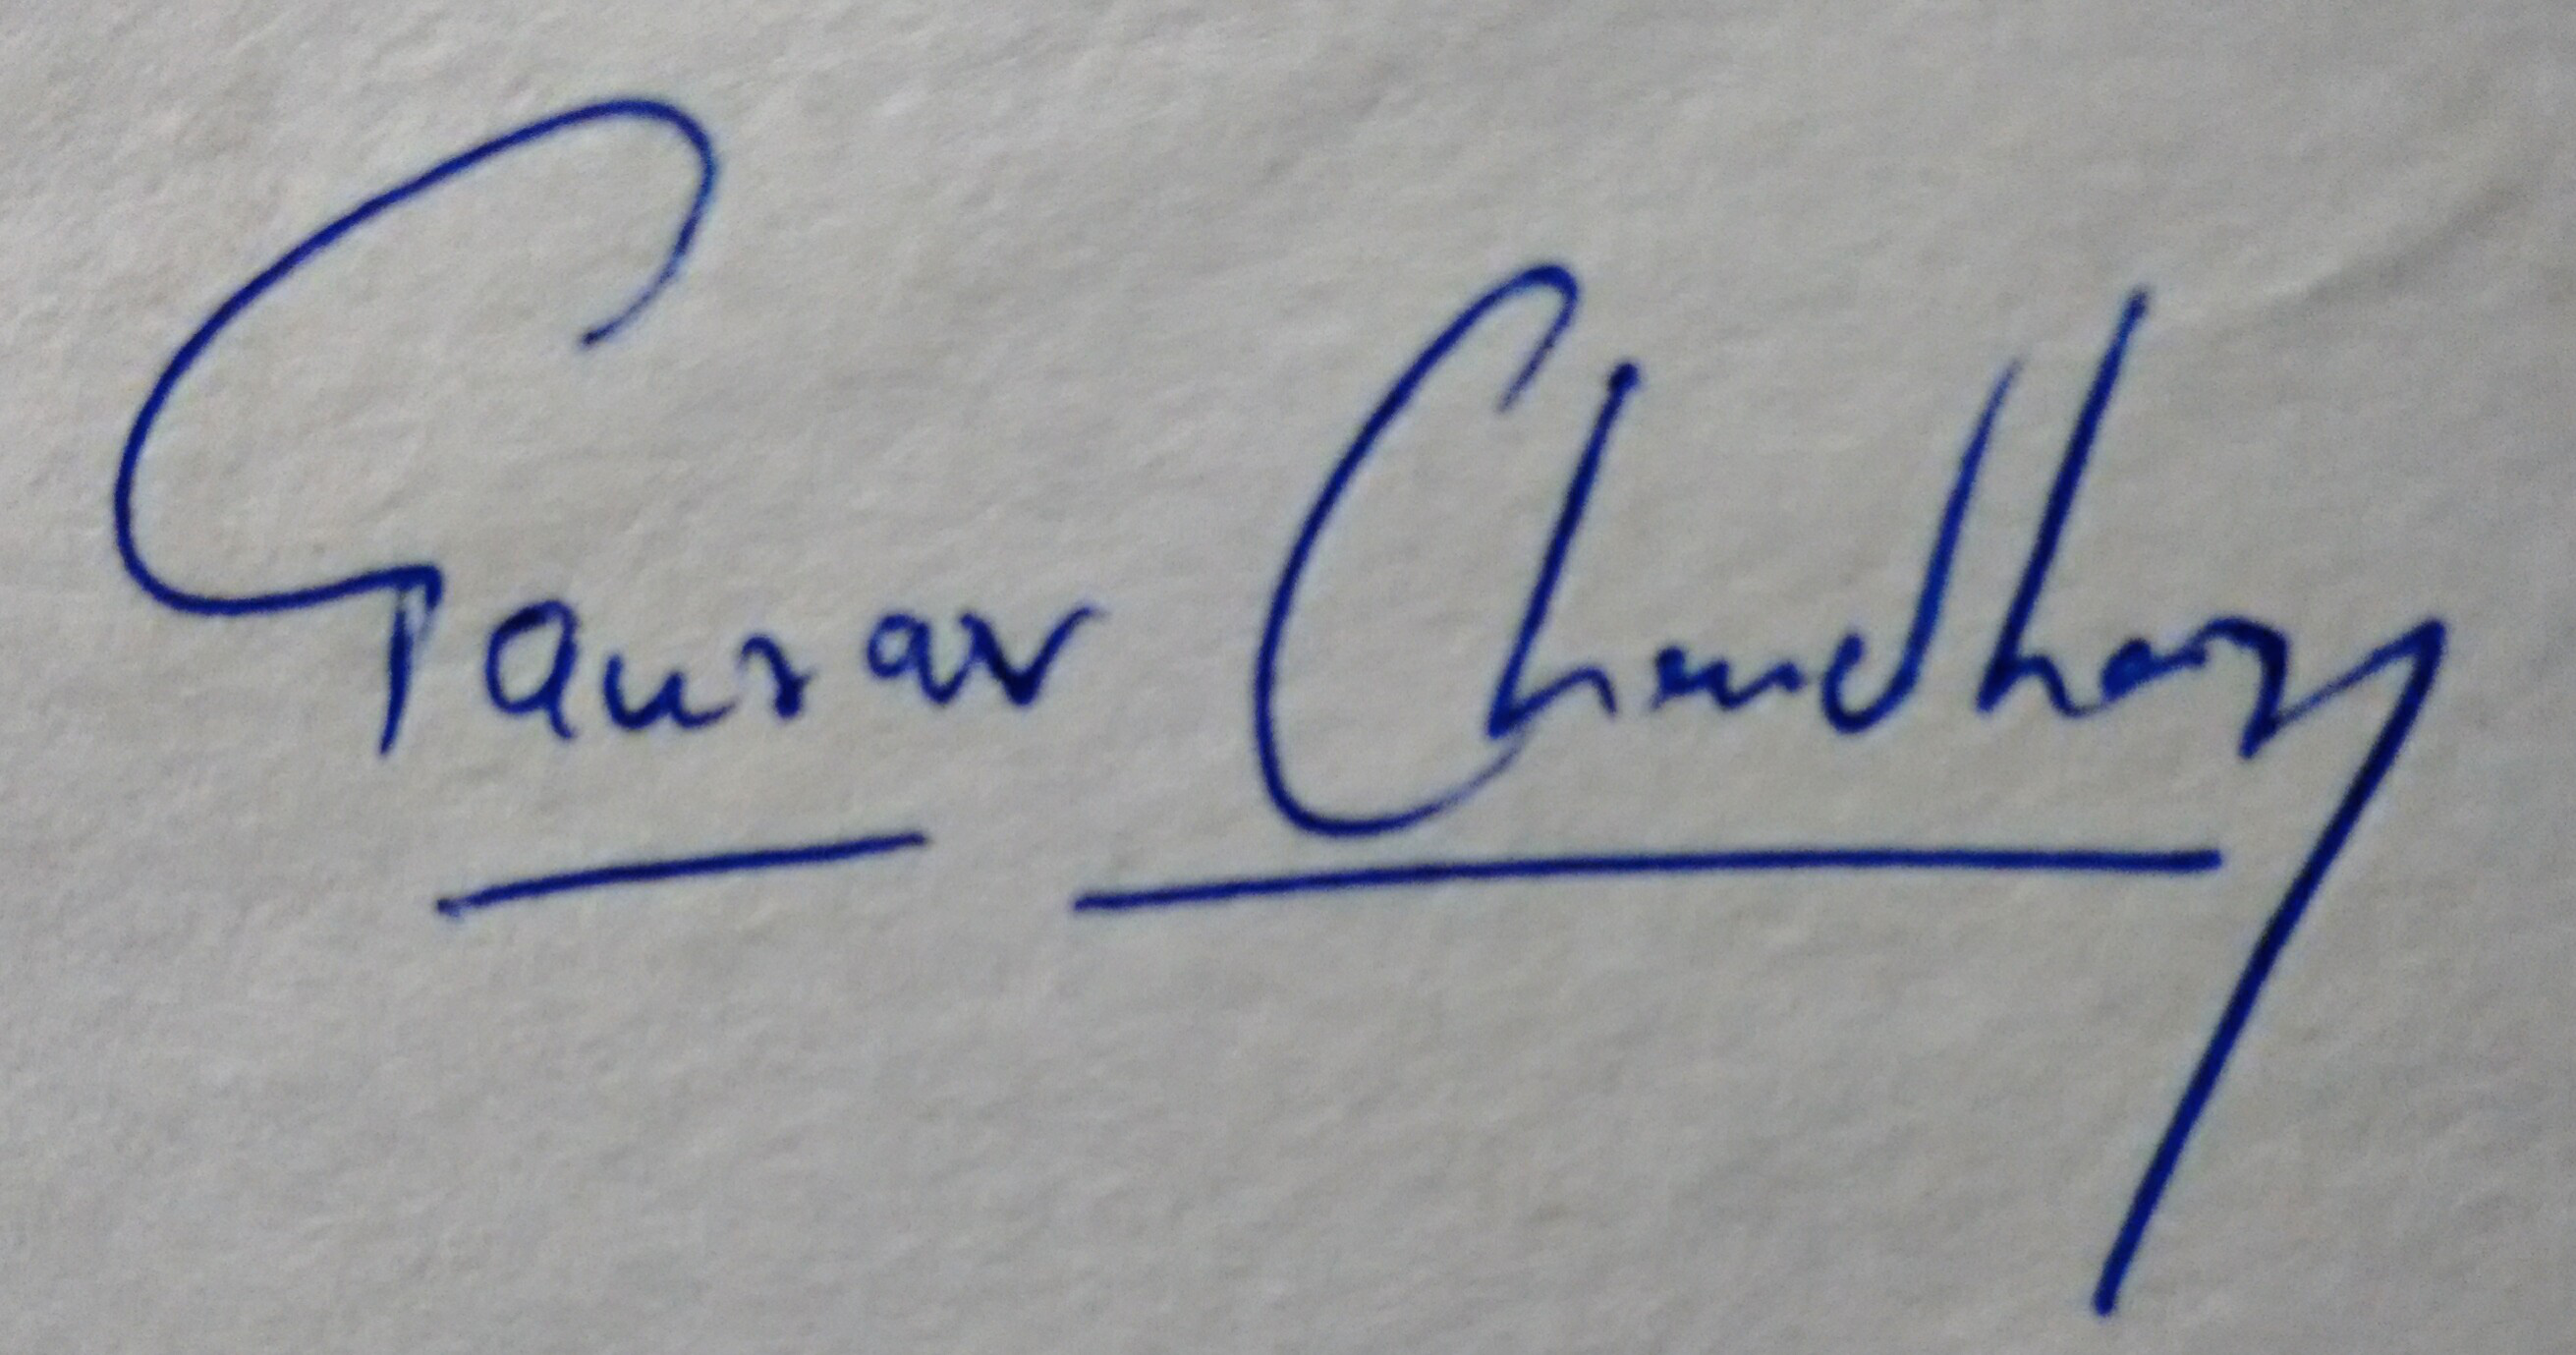 Gaurav Chaudhary